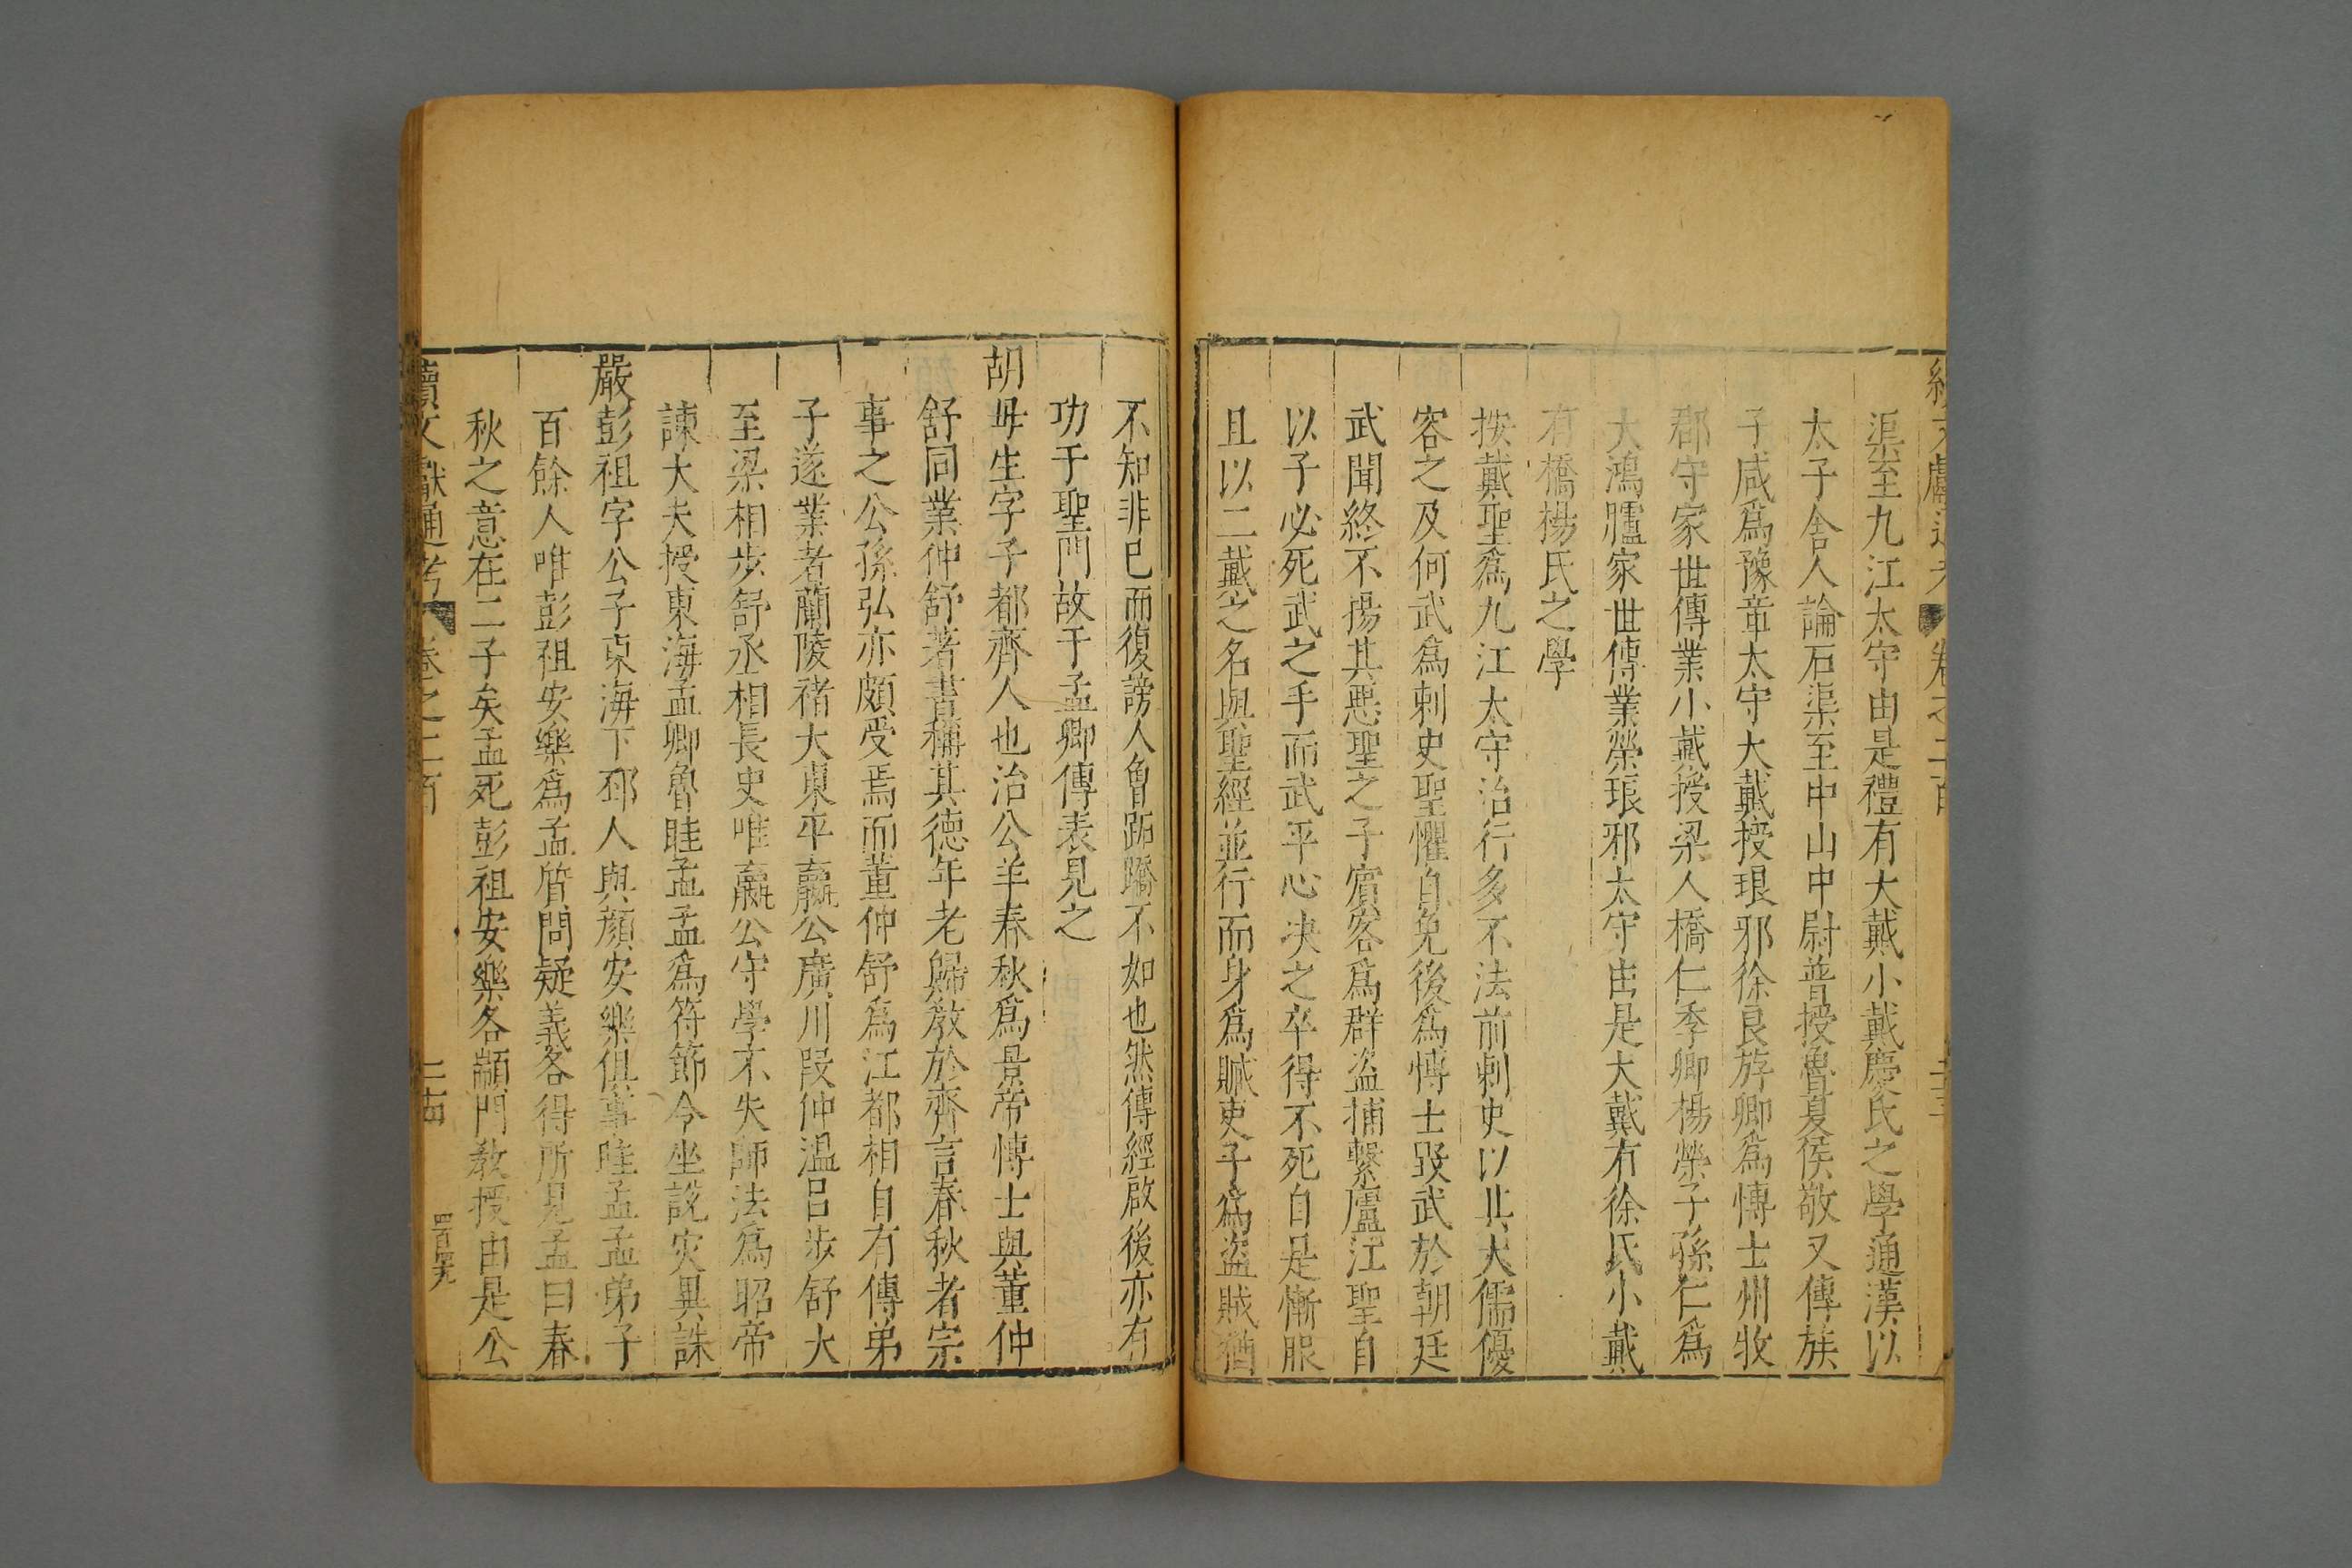 渠至九江太守由是禮有大戴小戴慶氏之學通漢以
太子舍人論石渠至中山中尉普授魯夏侯敬又傳族
子咸爲豫章太守大戴授琅邪徐良斿卿爲博士州牧
郡守家世傳業小戴授梁人橋仁季卿楊榮子孫仁爲
大鴻臚家世傳業榮琅邪太守由是大戴有徐氏小戴
有橋楊氏之學
按戴聖爲九江太守治行多不法前刺史以其大儒優
容之及何武爲刺史聖懼自免後爲博士毀武於朝廷
武聞終不揚其惡聖之子賓客爲群盜捕繫廬江聖自
以子必死武之手而武平心决之卒得不死自是慚服
且以二戴之名與聖經並行而身爲贓吏子爲盜賊猶
不知非已而復謗人會跖蹻不如也然傳經啟後亦有
功于聖門故于孟卿傳表見之
胡毋生字子都齊人也治公羊春秋爲景帝博士與董仲
舒同業仲舒著書稱其德年老歸教於齊言春秋者宗
事之公孫弘亦頗受焉而董仲舒爲江都相自有傳弟
子遂業者蘭陵褚大東平嬴公廣川段仲溫呂步舒大
至梁相步舒丞相長史唯嬴公守學不失師法爲昭帝
諫大夫授東海孟卿魯眭孟孟爲符節令坐說災異誅
嚴彭祖字公子東海下邳人與顏安樂俱事眭孟孟弟子
百餘人唯彭祖安樂爲孟質問疑義各得所見孟曰春
秋之意在二子矣孟死彭祖安樂各顓門教授由是公
續文獻通考 卷之二百 二十四 四百四十九